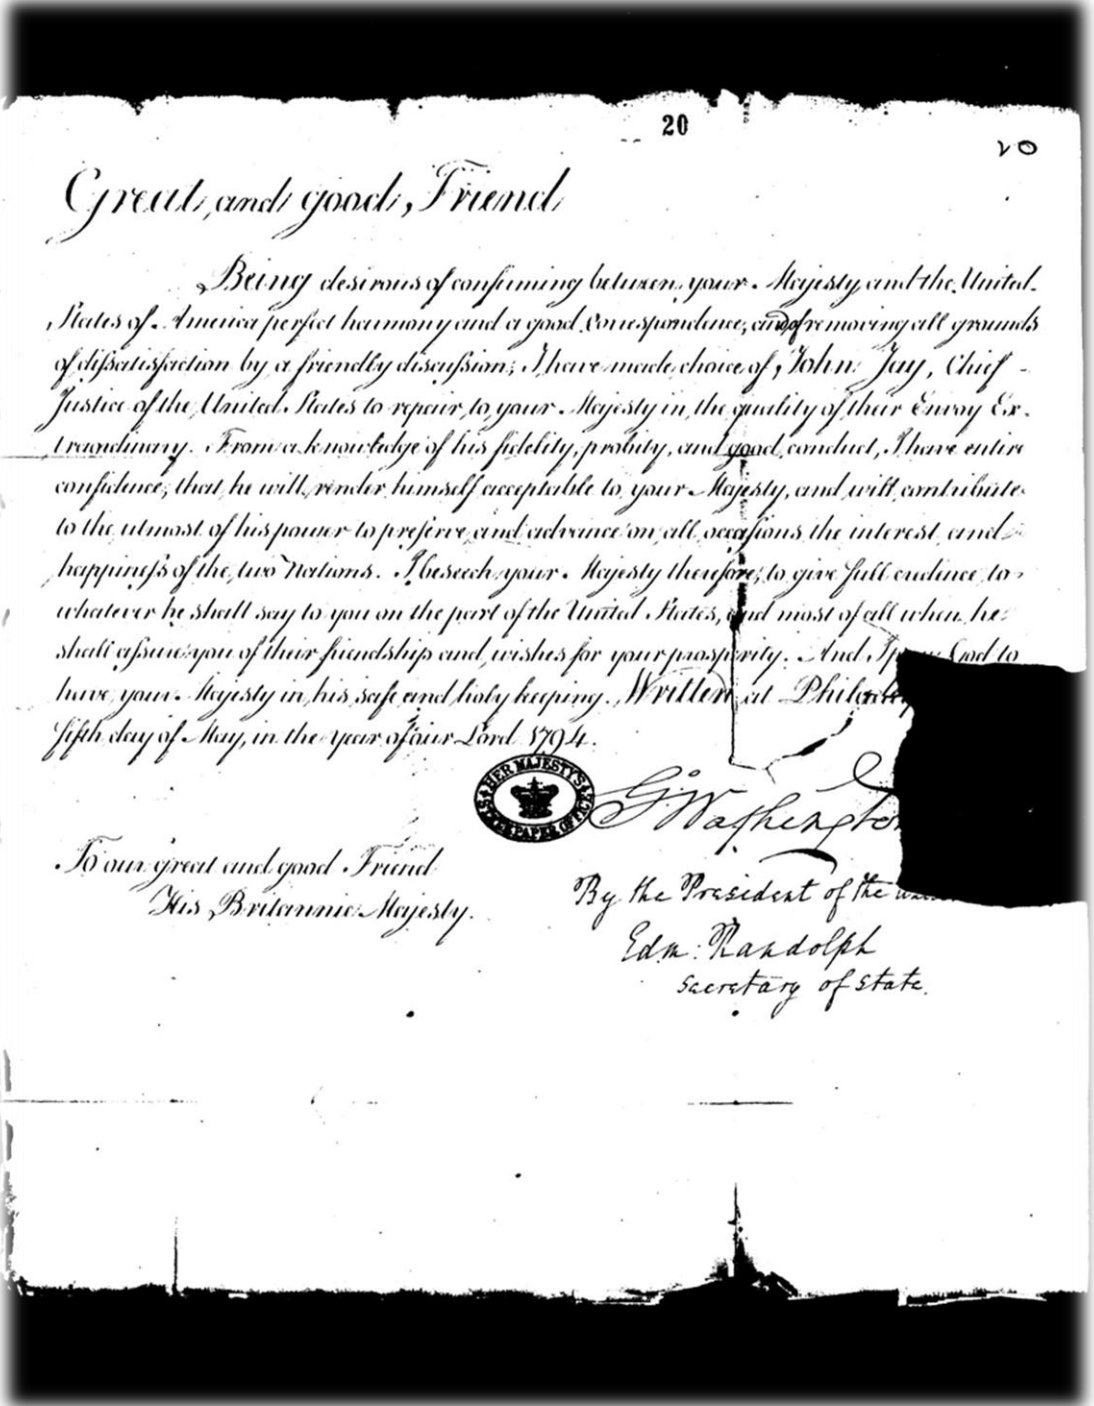 20
20
Great and good Friend
Being desirous of confirming between your Majesty and the United
States of America perfect harmony and a good correspondence, and of removing all grounds
of dissatisfaction by a friendly discussion; I have made choice of John Jay, Chief
Justice of the United States to repair to your Majesty in the quality of their Envoy Ex-
traordinary. From a knowledge of his fidelity, probity, and good conduct, I have entire
confidence, that he will render himself acceptable to your Majesty, and will contribute
to the utmost of his power to preserve and advance on all occasions the interest and
happiness of the two Nations. I beseech your Majesty therefore, to give full credence to
whatever he shall say to you on the part of the United States, and most of all when he
shall assure you of their friendship and wishes for your prosperity. And I pray God to
have your Majesty in his safe and holy keeping. Written at
fifth day of May, in the year of our Lord 1794.
HER MAJESTY'S STATE PAPER OFFICE
G Washington
To our great and good Friend
His Britannic Majesty.
By the President of the
Edm: Randolph
Secretary of State.